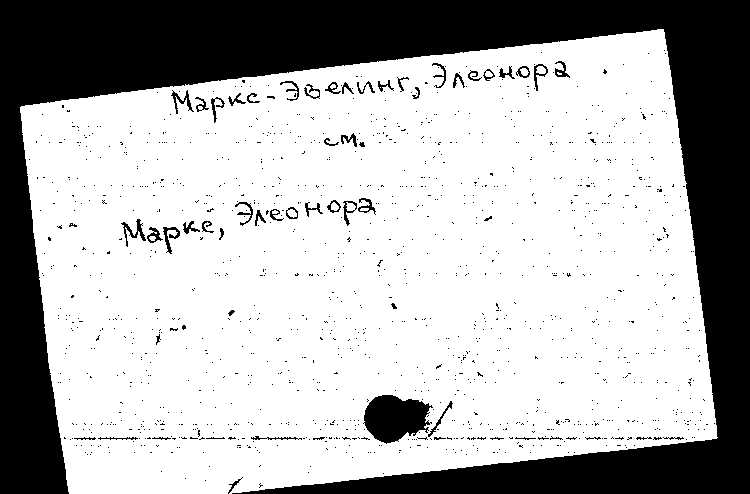 Маркс-Эвелинг, Элеонора
см.
Маркс, Элеонора